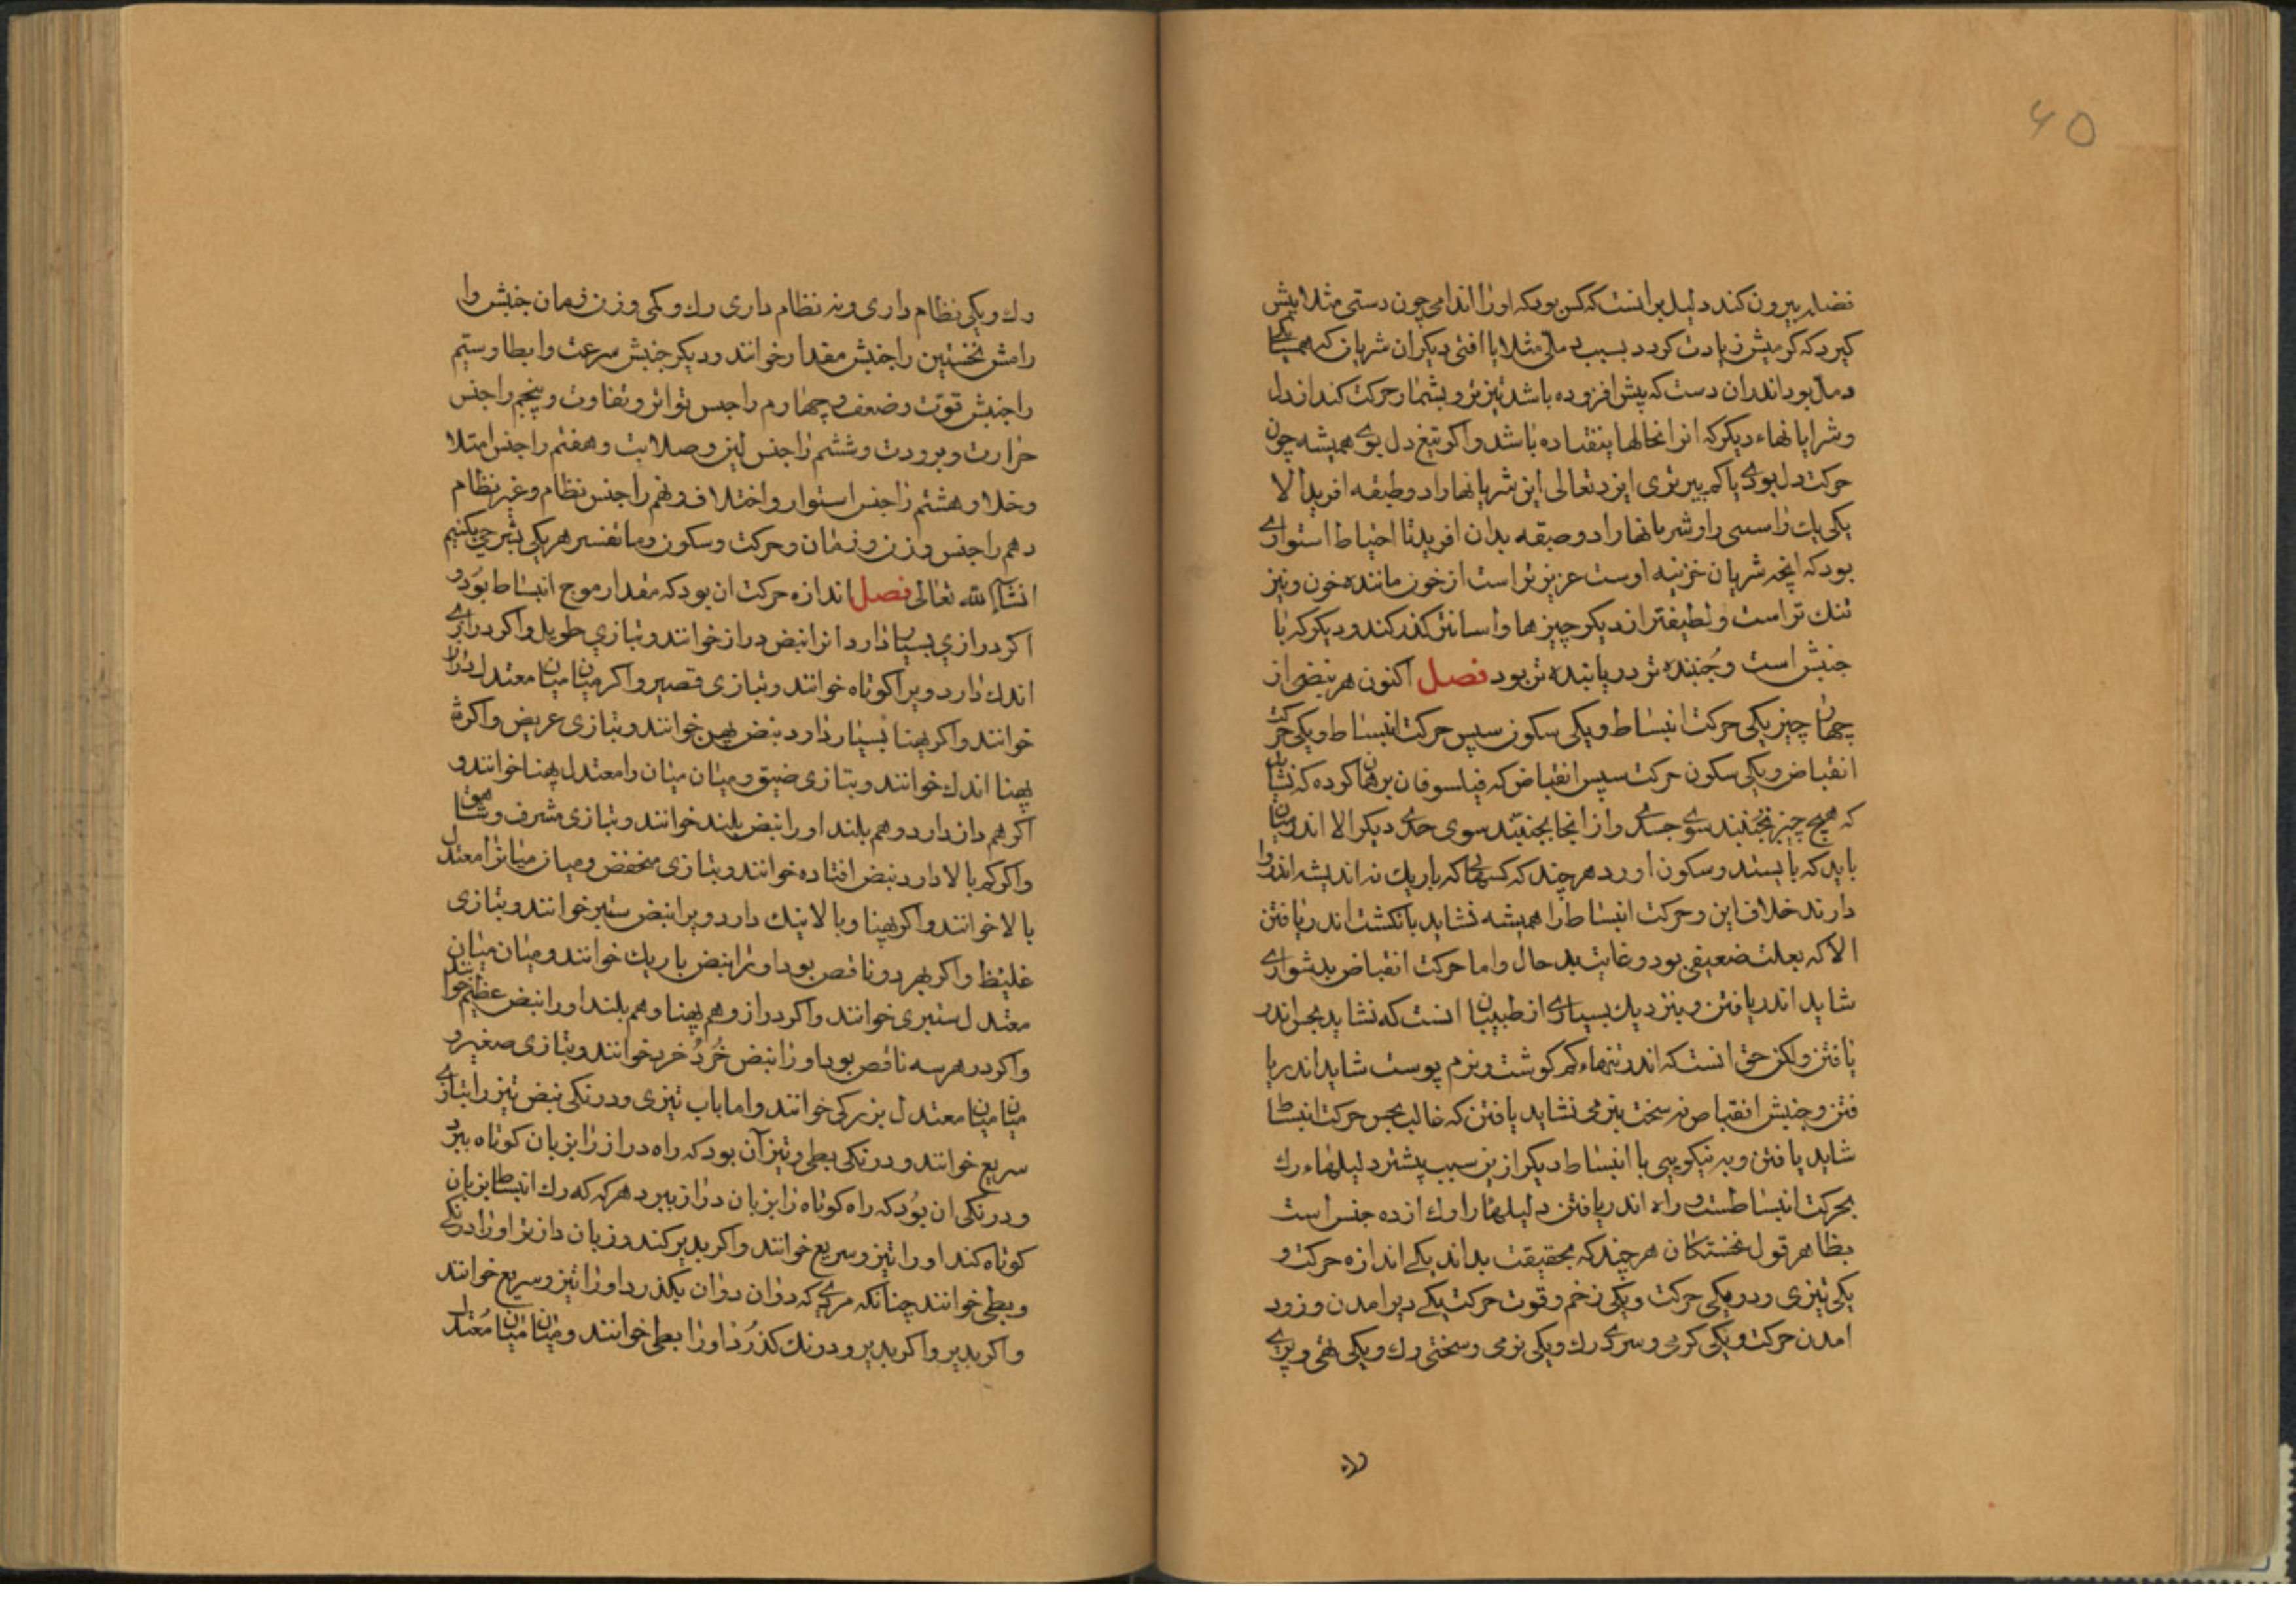 ۶۵
فضله بیرون کند دلیل برانست که کس بود که اورا اندامی چون دستی مثلا بیش
کیرد که کرمیش زیادت کردد بسبب دملی مثلا یا افتی دیکر ان شریان که همسایکا
دمل بود اندران دست که پیش افزوده باشد تیزتر و بشمار حرکت کند از دل
وشرایانهاء دیکر که انرا نحالها ینفتاده باشد واکر تیغ دل بوی همیشه چون
حرکت دل بودی یا کم بیرتری ایزد تعالی این شریانها را دو طبقه افرید الا
یکی یك را سسی را وشریانها را دو صبقه بدان افرید تا احتیاط استواری
بود که انچه شریان خزینه اوست عزیزتر است از خون ماننده خون ونیز
تنك تر است ولطیفتر از دیکر چیزها واسانتر کذر کند ودیکر که با
جنبش است وجُنبنده تر دریابنده تر بود فصل اکنون هر نبضی از
چهار چیز یکی حرکت انبساط ویکی سکون سپس حرکت انبساط ویکی حرکت
انقباض ویکی سکون حرکت سپس انقباض که فیلسوفان برهان کرده که نشاید
که هیچ چیز بجنبند سوی حدی واز انجا بجنبند سوی حدی دیکر الا اندر میان
باید که بایستد وسکون اورد هر چند که کسهائی که باریك نه اندیشه اند روا
دارند خلاف این وحرکت انبساط را همیشه نشاید بانکشت اندر یافتن
الا که بعلت ضعیفی بود وغایت بد حال واما حرکت انقباض بدشواری
شاید اندر یافتن وبنزدیك بسیاری از طبیبان انست که نشاید بحس اندر
یافتن ولکن حق انست که اندر تنهاء کم کوشت ونرم پوست شاید اندر یا
فتن وجنبش انقباض نه سخت بنرمی نشاید یافتن که غالب بحس حرکت انبساط
شاید یافتن وبه نیکویی با انبساط دیکر از بن سبب پیشتر دلیلهاء رك
بحرکت انبساطست وراه اندر یافتن دلیلها را رك از ده جنس است
بظاهر قول نخستکان هر چند که بحقیقت بداند یکی اندازه حرکت و
یکی تیزی ودرنکی حرکت ویکی زخم وقوت حرکت یکی دیر امدن وزود
امدن حرکت ویکی کرمی وسردی رك ویکی نرمی وسختی رك ویکی تهی وپری
رك ویکی نظام داری ونه نظام داری رك ویکی وزن زمان جنبش وا
رامش نخستین را جنبش مقدار خوانند ودیکر جنبش سرعت وابطا وستیم
را جنبش قوت وضعف وچهارم را جنس تواتر وتفاوت وپنجم را جنس
حرارت وبرودت وششم را جنس لین وصلابت وهفتم را جنس امتلا
وخلا وهشتم را جنس استوار واختلاف ونهم را جنس نظام وغیر نظام
دهم را جنس وزن وزمان وحرکت وسکون وما تفسیر هر یکی بشرحی بکنیم
انشاء الله تعالی فصل اندازه حرکت ان بود که مقدار موج انبساط بوَد و
اکر درازی بسیار دارد انرا نبض دراز خوانند وبتازی طویل واکر درازی
اندك دارد ویرا کوتاه خوانند وبتازی قصیر واکر میان میان معتدل درازا
خوانند واکر پهنا بسیار دارد نبض پهن خوانند وبتازی عریض واکرنه
پهنا اندك خوانند وبتازی ضیق ومیان میان را معتدل پهنا خوانند و
اکر هم دازدارد وهم بلند اورا نبض بلند خوانند وبتازی مشرف وشاهق
واکر کم بالا دارد نبض افتاده خوانند وبتازی منخفض ومیان میانرا معتدل
بالا خوانند واکر پهنا وبالا نیك دارد ویرا نبض ستبر خوانند وبتازی
غلیظ واکر بهر دو ناقص بود اورا نبض باریك خوانند ومیان میان
معتدل ستبری خوانند واکر دراز وهم پهنا وهم بلند اورا نبض عظیم خوانند
واکر در هر سه ناقص بود اورا نبض خُردُ خرد خوانند وبتازی صغیر و
میان میان معتدل بزرکی خوانند واما باب تیزی ودرنکی نبض تیز را بتازی
سریع خوانند ودرنکی بطی وتیز آن بود که راه دراز را بزیان کوتاه ببرد
ودرنکی ان بوُد که راه کوتاه را بزیان دراز ببرد هر که که رك انبساط بزیان
کوتاه کند اورا تیز وسریع خوانند واکر بدیر کند وزیان دازتر اورا درنکی
وبطی خوانند چنانکه مردی که دوان دوان بکذرد اورا تیز وسریع خوانند
واکر بدیر واکر بدیر ودرنك کذرُد اورا بطی خوانند ومیان میان مُعتدل